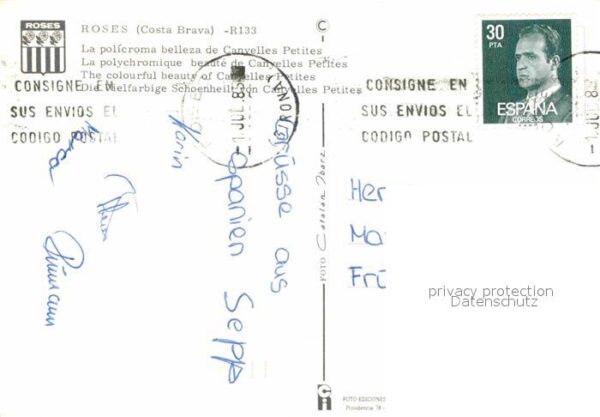 ROSES
ROSES (Costa Brava) -R133
La polícroma belleza de Canyelles Petites
La polychromique beauté de Canyelles Petites
The colourful beauty of Canyelles Petites
Die vielfarbige Schoenheit von Canyelles Petites
CONSIGNE EN
SUS ENVIOS EL
CODIGO POSTAL
1 JUL 83
CONSIGNE EN
SUS ENVIOS EL
CODIGO POSTAL
JUL 83
30
PTA
ESPAÑA
CORREOS
Grüsse aus
Spanien Sepp
Karin
Her
Ma
Fri
privacy protection
Datenschutz
FOTO
FOTO EDICIONES
Providencia, 78 -